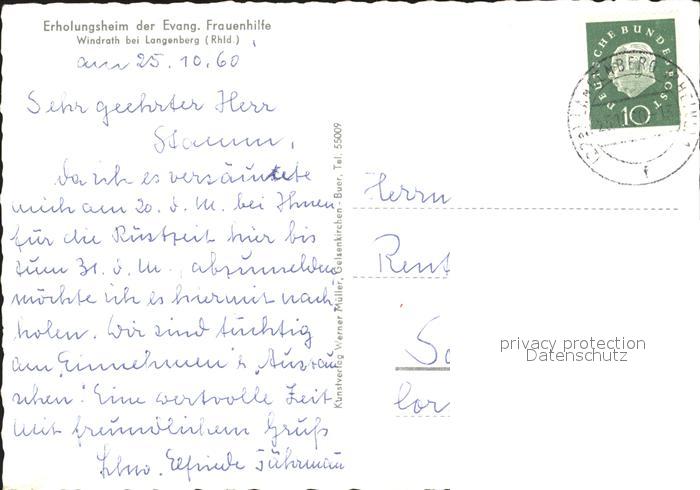 Erholungsheim der Evang. Frauenhilfe
Windrath bei Langenberg (Rhld.)
am 25.10.60
Sehr geehrter Herr
Stamm,
da ich es versäumte
mich am 20. d. M. bei Ihnen
für die Rüstzeit hier bis
zum 31. d. M. abzumelden
möchte ich es hiermit nach-
holen. Wir sind tüchtig
am „Einnehmen" u. „Austau
schen." Eine wertvolle Zeit.
Mit freundlichem Gruß
Schw. Elfriede Führmann
Kunstverlag Werner Müller, Gelsenkirchen-Buer, Tel. 55009
DEUTSCHE BUNDESPOST
10
LANGENBERG
f
Herrn
Rent
privacy protection
Datenschutz